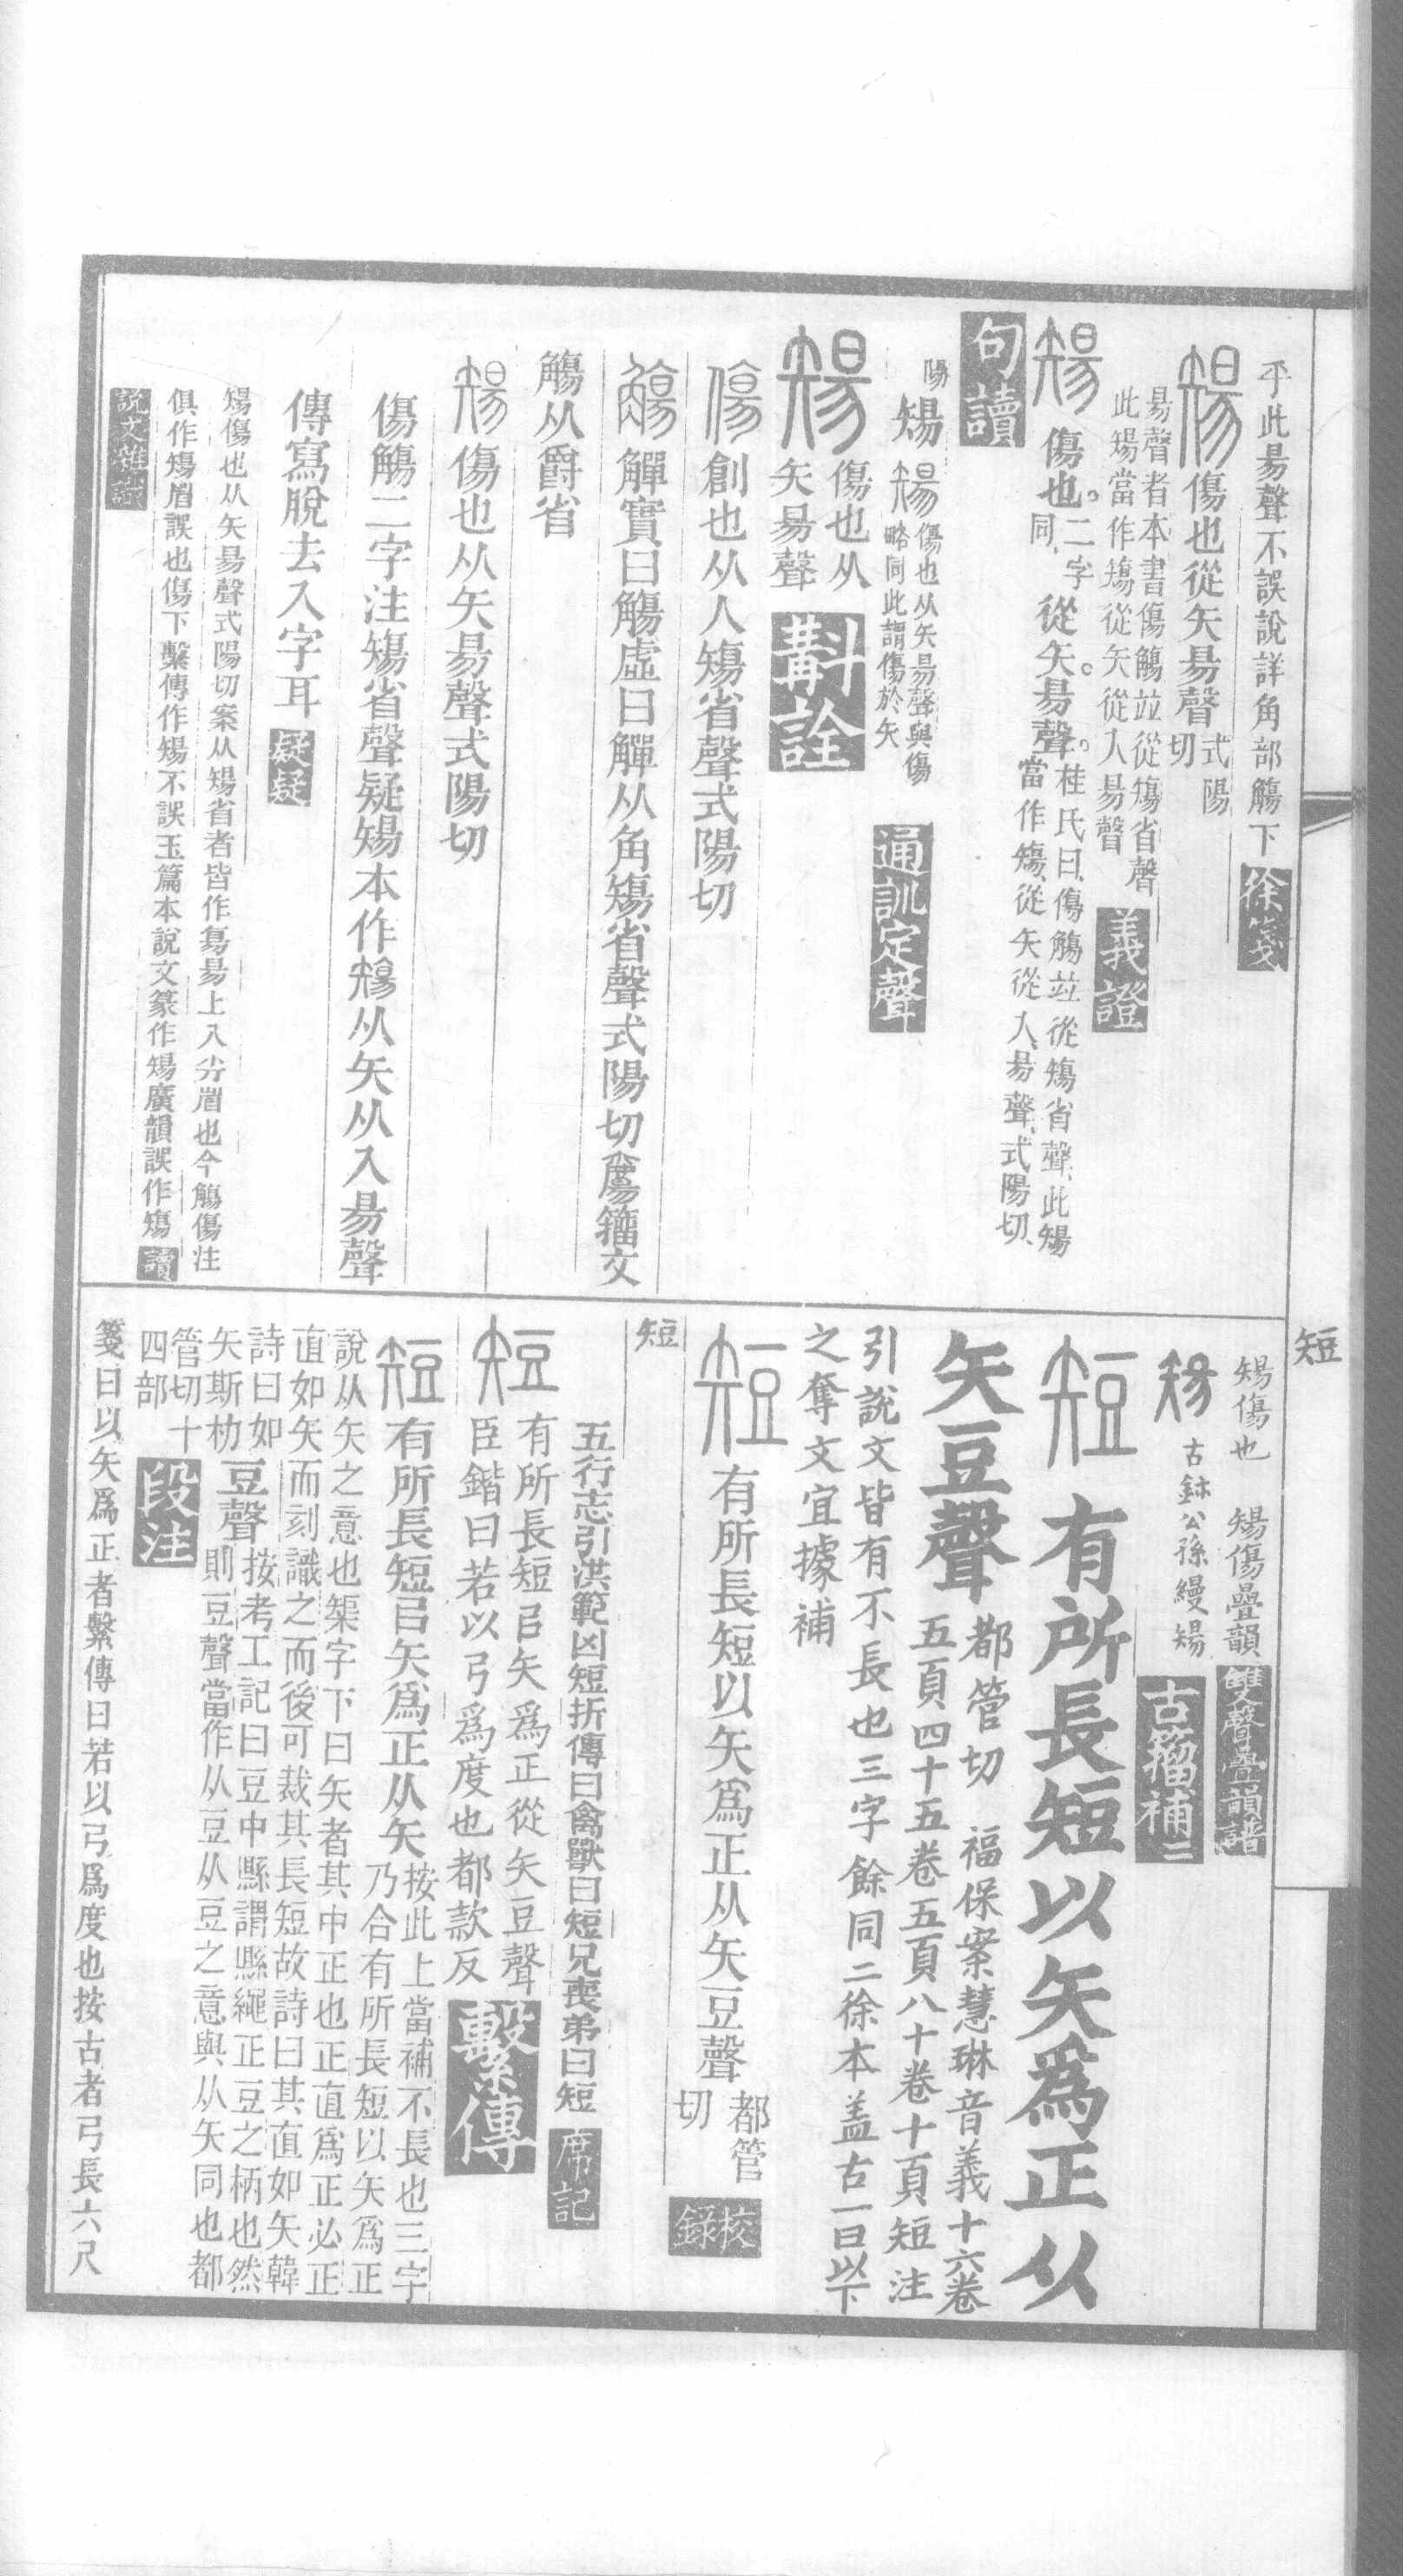 乎此昜聲不誤說詳角部觴下 徐箋
傷也從矢昜聲 式陽切
昜聲者本書傷觴竝從𥏻省聲
此𥏫當作𥏻從矢從入昜聲 義證
傷也。二字同、從矢。昜聲。桂氏曰、傷觴竝從𥏻省聲、此𥏫
當作𥏻、從矢從入、昜聲、式陽切、
句讀
陽 𥏫 傷也从矢昜聲與傷
略同此謂傷於矢 通訓定聲
傷也从
矢昜聲 斠詮
創也从人𥏻省聲式陽切
觶實曰觴虛曰觶从角𥏻省聲式陽切 籀文
觴从爵省
傷也从矢昜聲式陽切
傷觴二字注𥏻省聲疑𥏫本作𥏻从矢从入昜聲
傳寫脫去入字耳 疑疑
𥏫傷也从矢昜聲式陽切案从𥏫省者皆作昜上入
今觴傷注
俱作𥏻 誤也傷下繫傳作𥏫不誤玉篇本說文篆作𥏫廣韻誤作𥏻 讀
說文雜註
短
𥏫傷也 𥏫傷疊韻 雙聲疊韻譜
古鉢公孫縵𥏫 古籀補二
有所長短以矢爲正从
矢豆聲 都管切 福保案慧琳音義十六卷
五頁四十五卷五頁八十卷十頁短注
引說文皆有不長也三字餘同二徐本盖古一曰以下
之奪文宜據補
有所長短以矢爲正从矢豆聲 都管切 校錄
短
五行志引洪範凶短折傳曰禽獸曰短兄喪弟曰短 席記
有所長短㠯矢爲正從矢豆聲
臣鍇曰若以弓爲度也都款反 繫傳
有所長短㠯矢爲正从矢 按此上當補不長也三字
乃合有所長短以矢爲正
說从矢之意也榘字下曰矢者其中正也正直爲正必正
直如矢而刻識之而後可裁其長短故詩曰其直如矢韓
詩曰如矢斯朸 豆聲 按考工記曰豆中縣謂縣繩正豆之柄也然
則豆聲當作从豆从豆之意與从矢同也都
管切十四部 段注
箋曰以矢爲正者繫傳曰若以弓爲度也按古者弓長六尺